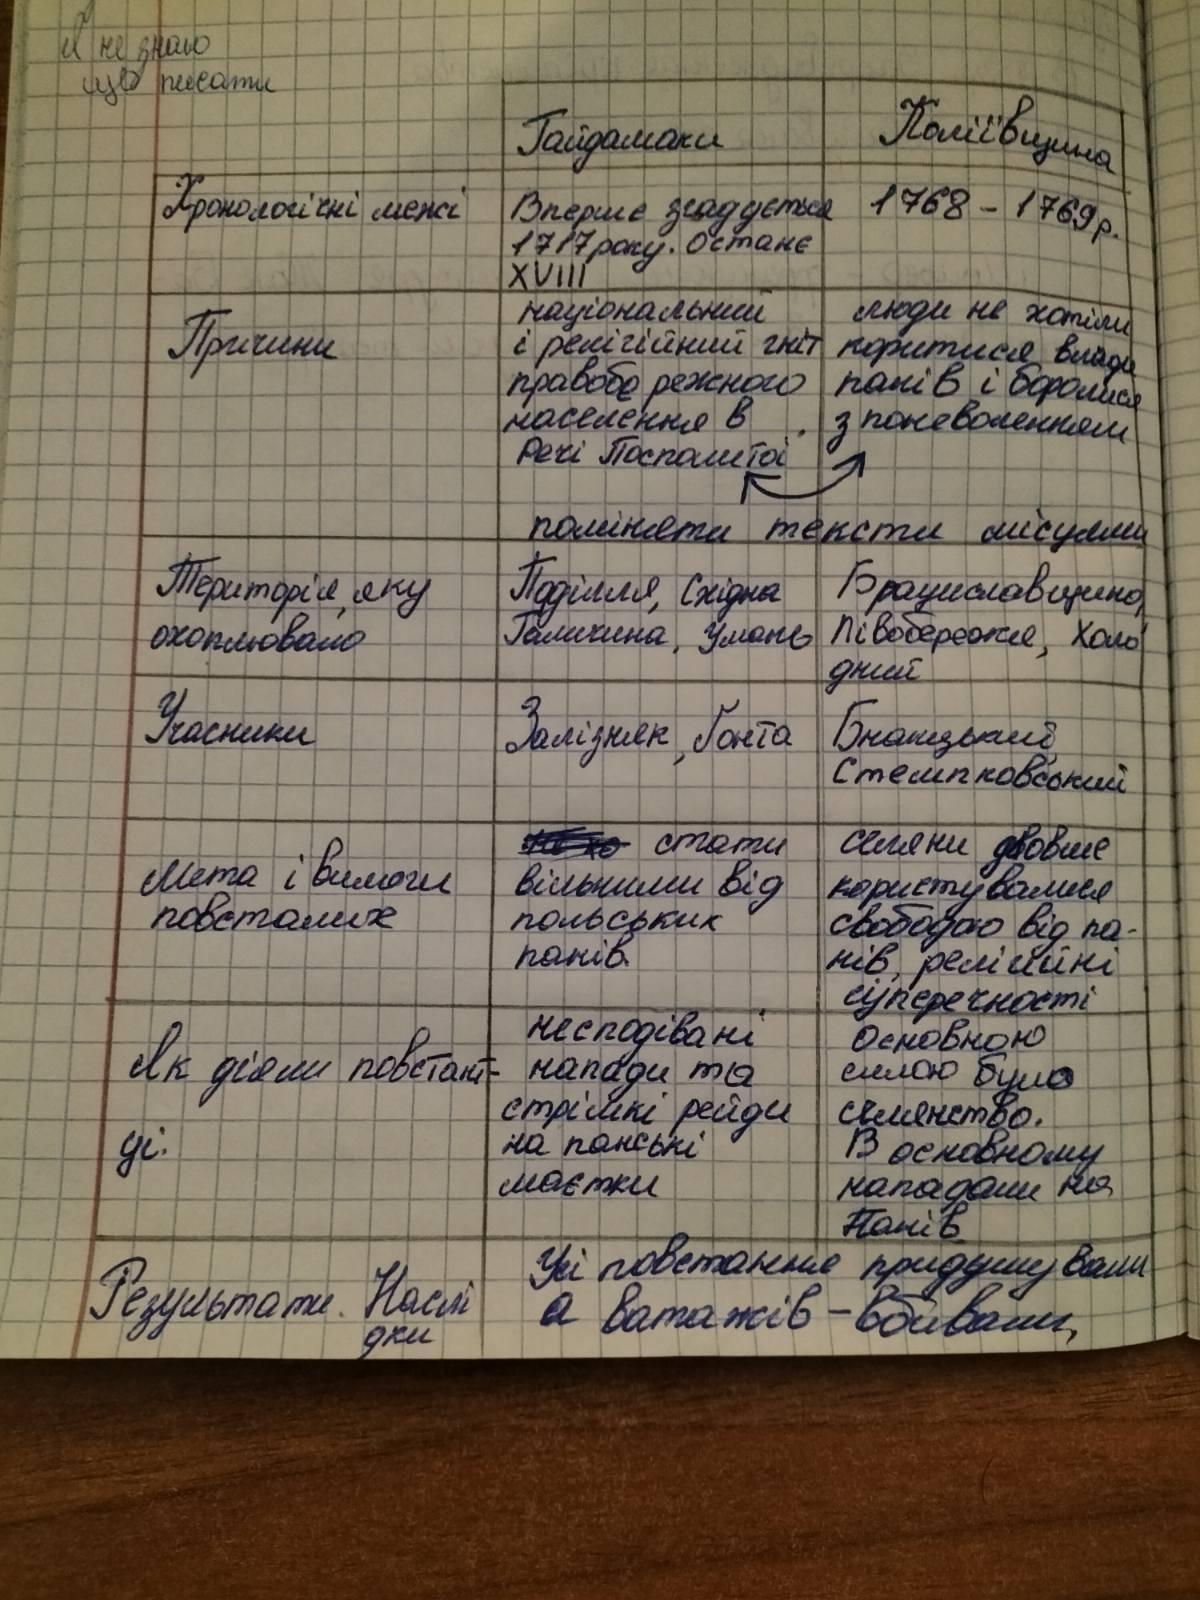 Я не знаю
що писати
Гайдамаки
Коліївщина
Хронологічні межі
Вперше згадується
1717 року. Останє
XVIII
1768 – 1769 р.
Причини
національний
і релігійний гніт
правобережного
населення в
Речі Посполитої
люди не хотіли
коритися влади
панів і боролися
з поневоленням
поміняти тексти місцями
Територія, яку
охоплювало
Поділля, Східна
Галичина, Умань
Брацлавщина,
Лівобережжя, Холо
дний
Учасники
Залізняк, Гонта
Бнацький,
Стемпковський
Мета і вимоги
повсталих
стати
вільними від
польських
панів
селяни довше
користувалися
свободою від па-
нів, релігійні
суперечності
Як діяли повстан-
ці.
несподівані
напади та
стрімкі рейди
на панські
маєтки
основною
силою було
селянство.
В основному
нападали на
панів
Результати. Наслі
дки
Усі повстання придушували
а ватажків – вбивали,